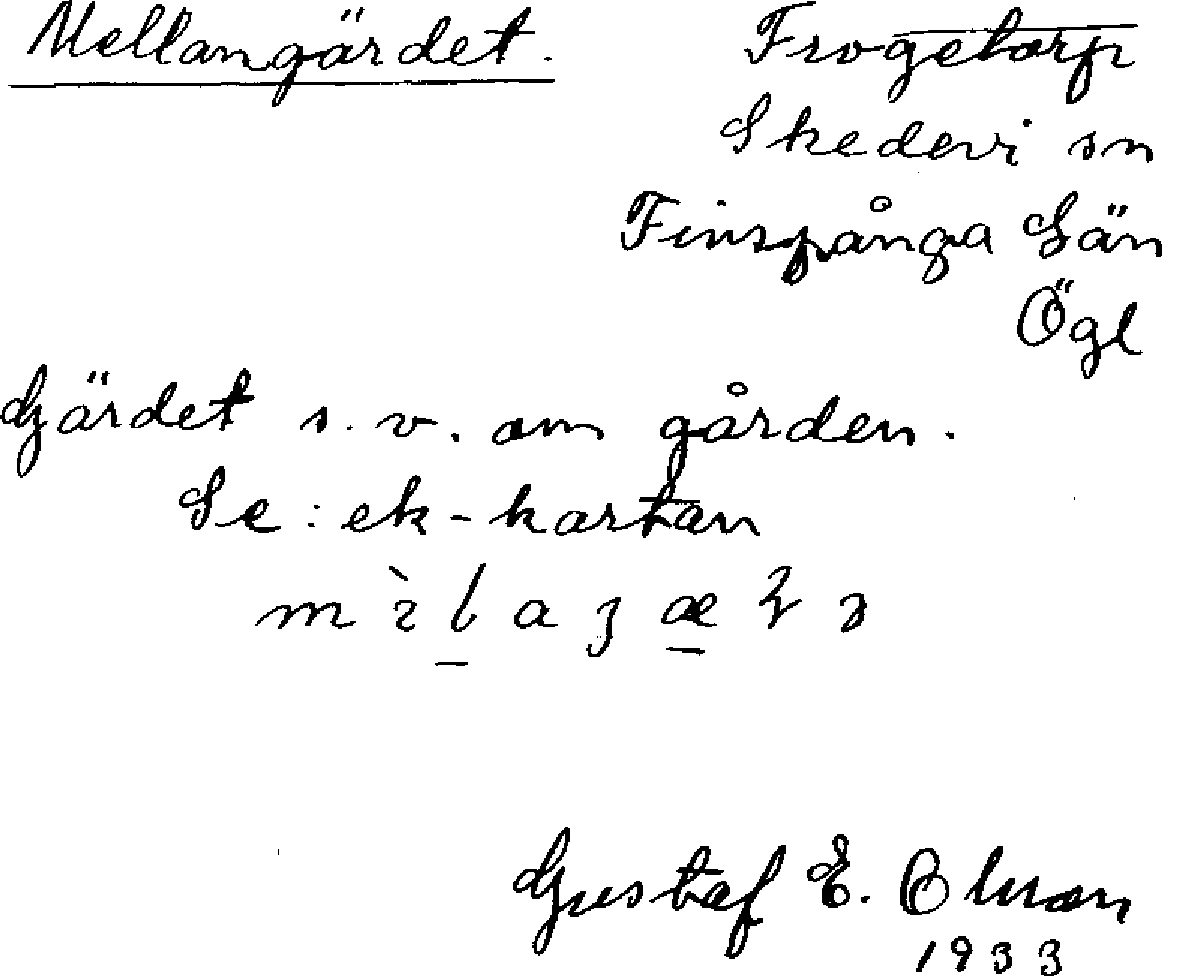 Mellangärdet.
Frogetorp
Skedevi sn
Finspånga Län
Ögl
Gärdet s.v. om gården.
Se: ek-kartan
Gustaf E.
1933